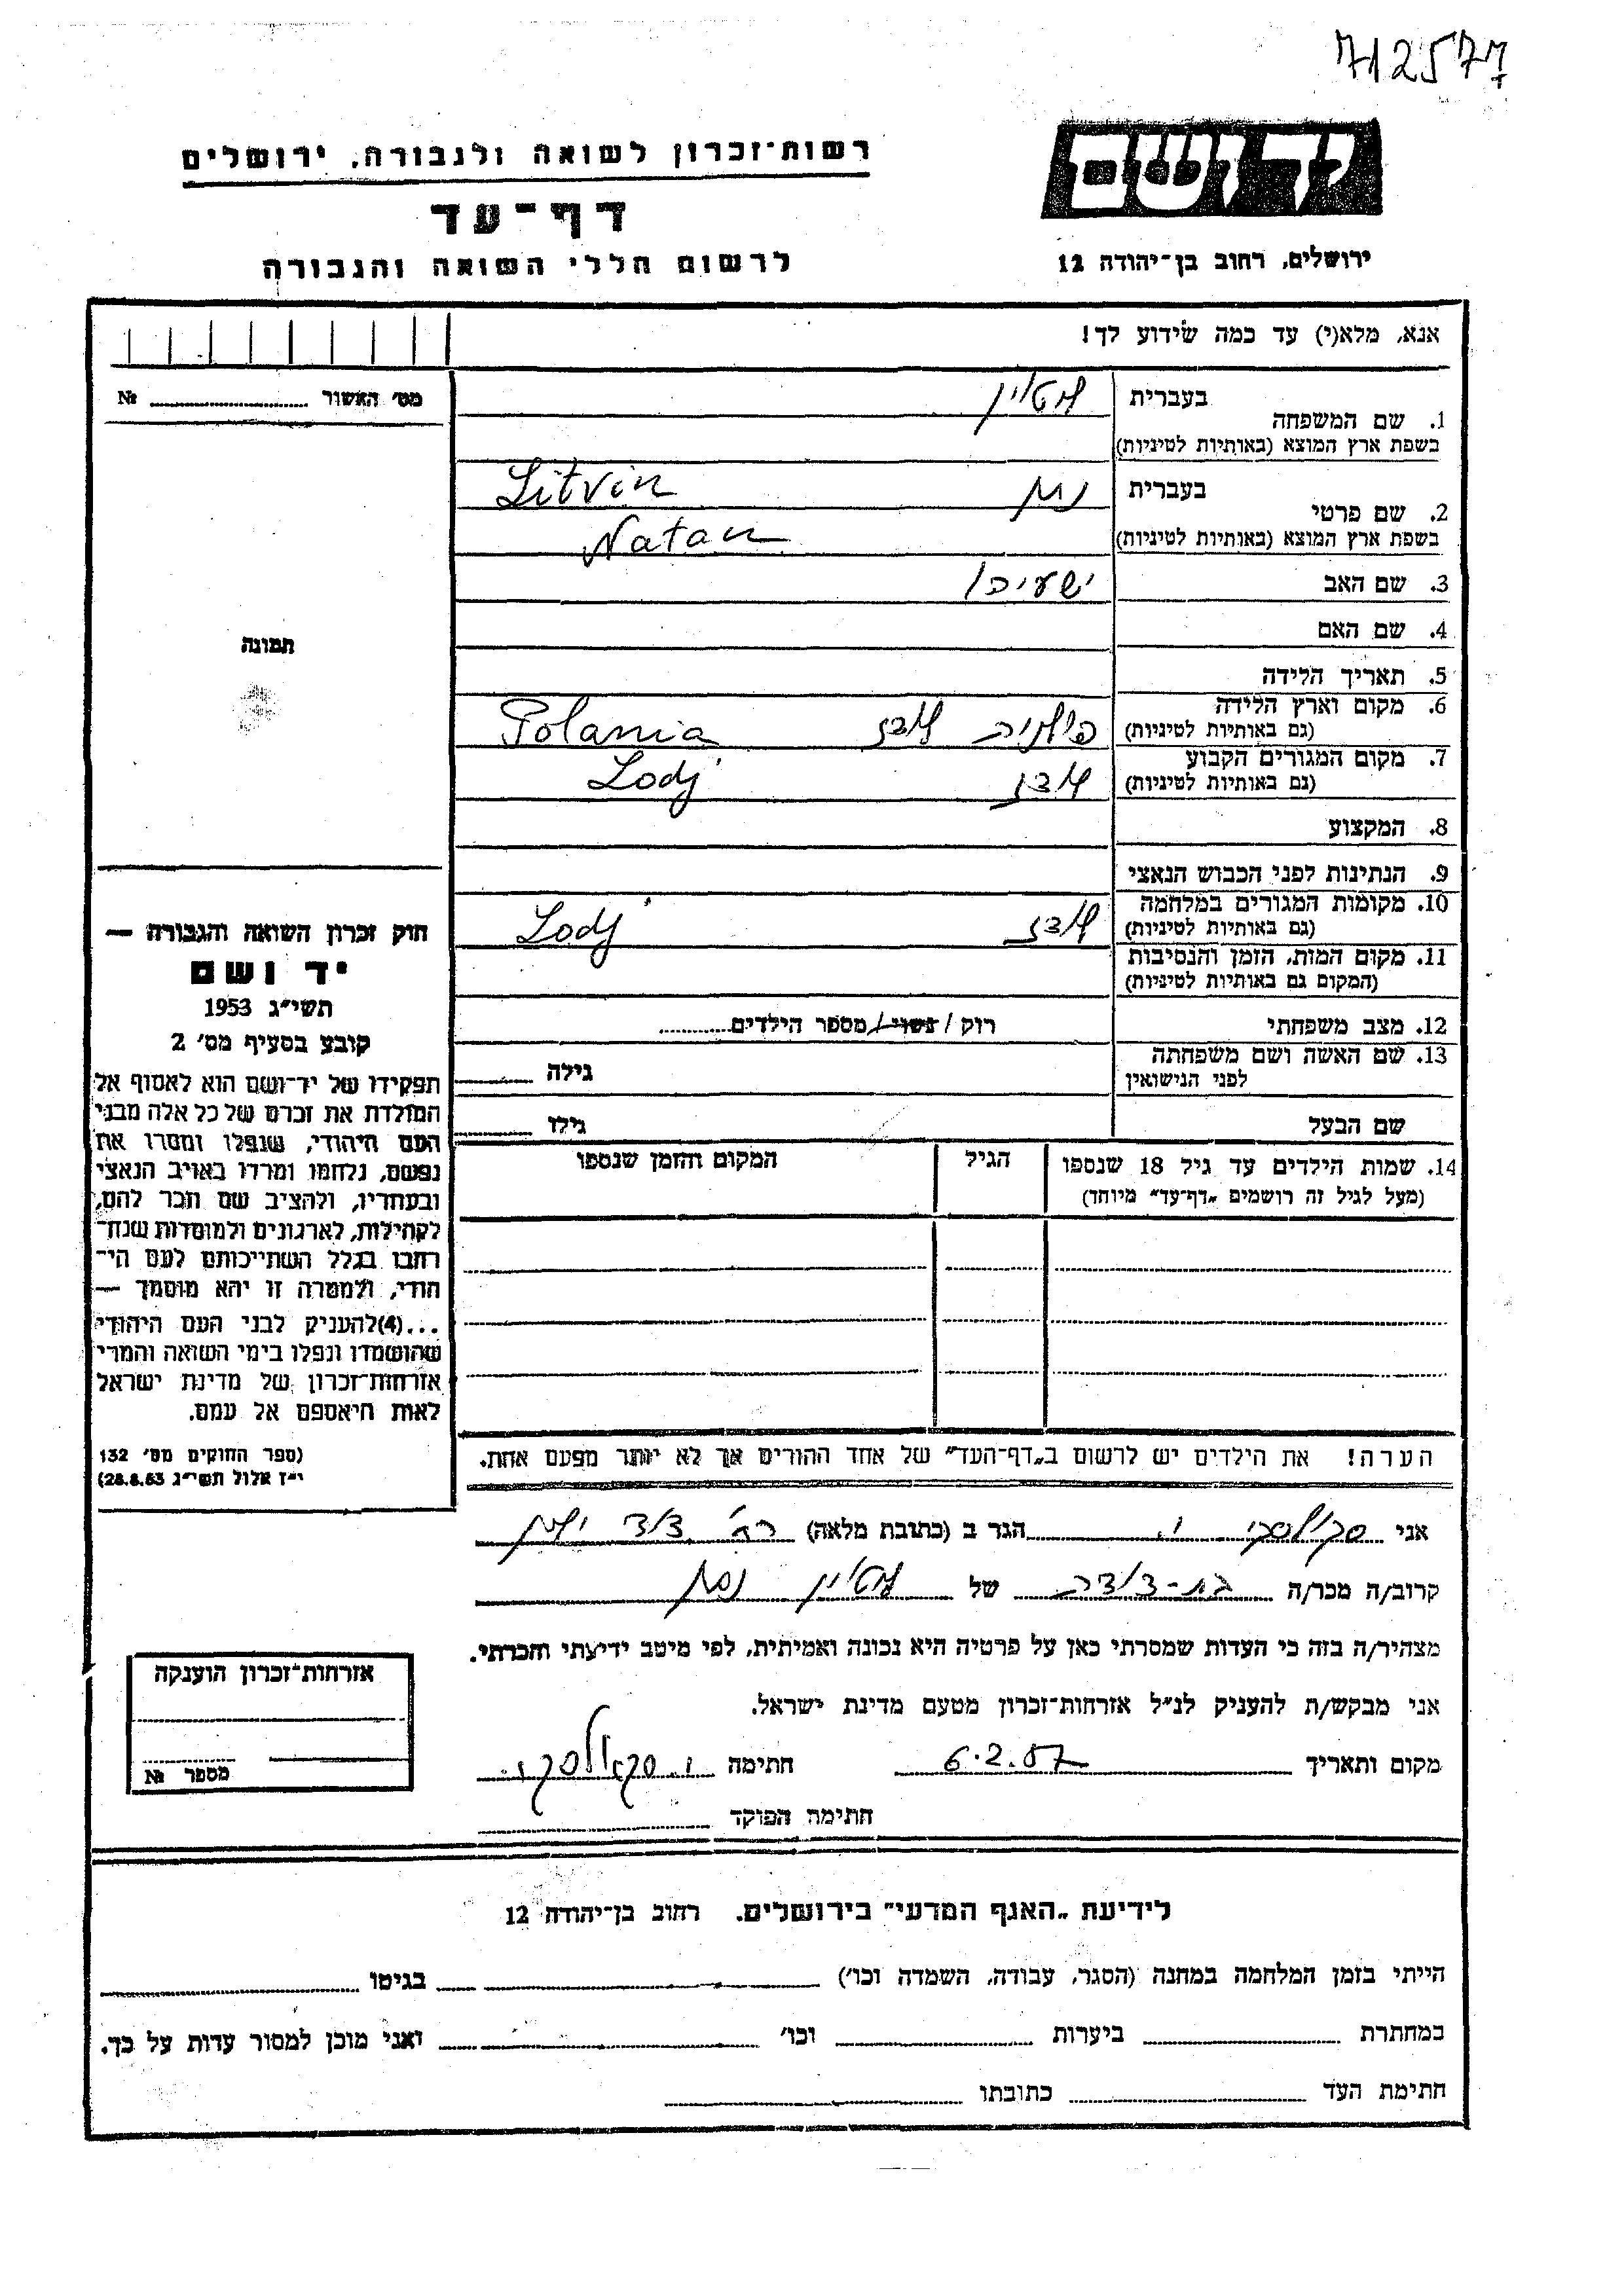 712577
יד ושם
רשות־זכרון לשואה ולגבורה, ירושלים
דף־עד
לרשום חללי השואה והגבורה
ירושלים, רחוב בן־יהודה 12
אנא, מלא(י) עד כמה שידוע לך!
מס׳ האשור № 
1. שם המשפחה בעברית ליטוין
בשפת ארץ המוצא (באותיות לטיניות) Litvin
2. שם פרטי בעברית נתן
בשפת ארץ המוצא (באותיות לטיניות) Natan
3. שם האב ישעיהו
4. שם האם
5. תאריך הלידה
6. מקום וארץ הלידה (גם באותיות לטיניות) פולניה לודז Polania
7. מקום המגורים הקבוע (גם באותיות לטיניות) לודז Lodj
8. המקצוע
9. הנתינות לפני הכבוש הנאצי
10. מקומות המגורים במלחמה (גם באותיות לטיניות) לודז Lodj
11. מקום המות, הזמן והנסיבות (המקום גם באותיות לטיניות)
12. מצב משפחתי רוק / נשוי / מספר הילדים
13. שם האשה ושם משפחתה לפני הנישואין גילה
שם הבעל גילו
14. שמות הילדים עד גיל 18 שנספו (מעל לגיל זה רושמים „דף־עד״ מיוחד)
הגיל
המקום והזמן שנספו
הערה! את הילדים יש לרשום ב„דף־העד״ של אחד ההורים אך לא יותר מפעם אחת.
תמונה
חוק זכרון השואה והגבורה —
יד ושם
תשי״ג 1953
קובע בסעיף מס׳ 2
תפקידו של יד־ושם הוא לאסוף אל
המולדת את זכרם של כל אלה מבני
העם היהודי, שנפלו ומסרו את
נפשם, נלחמו ומרדו באויב הנאצי
ובעוזריו, ולהציב שם וזכר להם,
לקהילות, לארגונים ולמוסדות שנח־
רבו בגלל השתייכותם לעם הי־
הודי, ולמטרה זו יהא מוסמך —
...(4)להעניק לבני העם היהודי
שהושמדו ונפלו בימי השואה והמרי
אזרחות־זכרון של מדינת ישראל
לאות היאספם אל עמם.
(ספר החוקים מס׳ 132
י״ז אלול תשי״ג 28.8.53)
אני סקולסקי ו. הגר ב (כתובת מלאה)
קרוב/ה מכר/ה בת-דודה של ליטוין נתן
מצהיר/ה בזה כי העדות שמסרתי כאן על פרטיה היא נכונה ואמיתית, לפי מיטב ידיעתי והכרתי.
אני מבקש/ת להעניק לנ״ל אזרחות־זכרון מטעם מדינת ישראל.
מקום ותאריך 6.2.57 חתימה ו. סקולסקי
חתימה הפוקד
אזרחות־זכרון הוענקה
מספר №
לידיעת „האגף המדעי״ בירושלים. רחוב בן־יהודה 12
הייתי בזמן המלחמה במחנה (הסגר, עבודה, השמדה וכו׳) בגיטו
במחתרת ביערות וכו׳ ואני מוכן למסור עדות על כך.
חתימת העד כתובתו